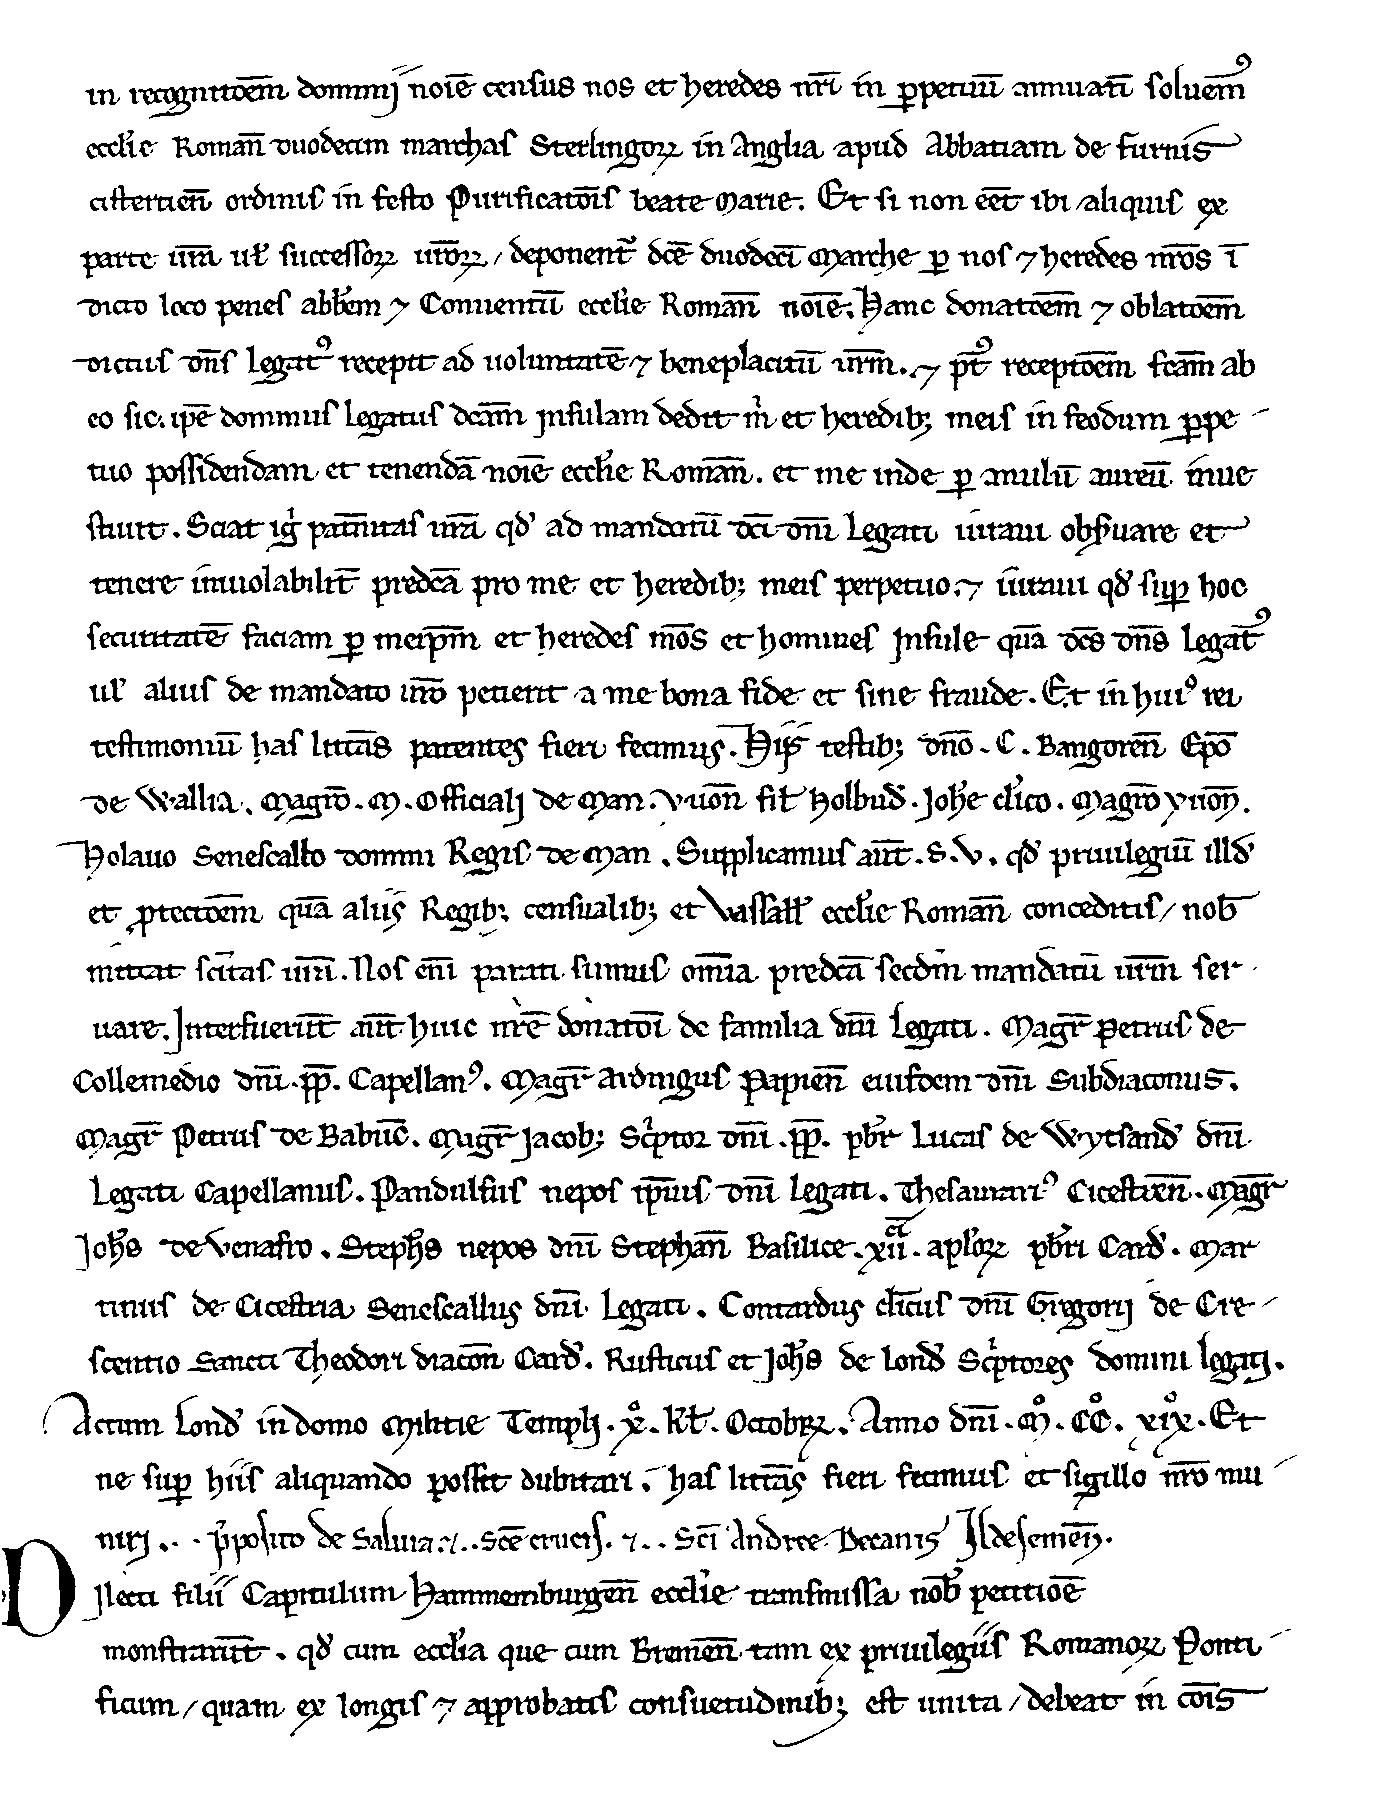 in recognitōem dominij noīe census nos et heredes nr̄i in ꝑpetuū annuatī soluemꝰ
eccl̓ie Roman̄ duodecim marchas Sterlingoꝝ in Anglia apud Abbatiam de furnis
cistertien̄ ordinis in festo Purificatōis beate Marie. Et si non eēt ibi / aliquis ex
parte ur̄a ul̓ successoꝝ ur̄oꝝ / deponent᷑ dc̄e duodeci Marche ꝑ nos ⁊ heredes nr̄os ī
dicto loco penes abb̓em ⁊ Conuentū eccl̓ie Roman̄ noīe. Hanc donatōem ⁊ oblatōem
dictus dn̄s legatꝰ recepit ad uoluntatē ⁊ beneplacitū ur̄m. ⁊ p᷒t receptōem fc̄am ab
eo sic. ip̄e dominus legatus dc̄am Insulam dedit m̓ et heredibꝫ meis in feodum ꝑpe
tuo possidendam et tenendā noīe eccl̓ie Roman̄. et me inde ꝑ anulū aureū inue
stiuit. Sciat ig̓ pat̄nitas ur̄a qd̓ ad mandatū dc̄i dn̄i Legati iuraui obs̓uare et
tenere inuiolabilit̄ predc̄a pro me et heredibꝫ meis perpetuo. ⁊ iuraui qd̓ suꝑ hoc
securitatē faciam ꝑ meip̄m et heredes meōs et homines Insule quā dc̄s dn̄s legatꝰ
ul̓ alius de mandato ur̄o petierit a me bona fide et sine fraude. Et in huiꝰ rei
testimoniū has litt̄as patentes fieri fecimus. Hijs testibꝫ dn̄o. C. Bangoren̄ Ep̄o
de Wallia. Magr̄o. M. Officialj de Man. yuon̄ fil̓ Holbud̓. Joh̓e cl̓ico. Magr̄o yuon̄.
Holauo Senescallo domini Regis de Man. Supplicamus aūt. S. V. qd̓ priuilegiū illd̓
et ꝓtectōem quā alijs Regibꝫ censualibꝫ et Vassall̓ eccl̓ie Roman̄ conceditis / nob̓
mittat sc̄itas ur̄a. Nos en̄i parati sumus om̄ia predc̄a secdm̄ mandatū ur̄m ser
uare. Interfuerūt aūt huic nr̄e donatōi de familia dn̄i Legati. Magr̄ Petrus de
Collemedio dn̄i. pp̄. Capellanꝰ. Magr̄ Ardinigus Papien̄ eiusdem dn̄i Subdiaconus.
Magr̄ Petrus de Babuc̄. Magr̄ Jacobꝫ Sc̓ptor dn̄i. pp̄. pb̓r Lucas de Wytsand̓ dn̄i
Legati Capellanus. Pandulfus nepos ip̄ius dn̄i legati. Thesaurariꝰ Cicestren̄. Magr̄
Joh̓s de Venafro. Steph̓s nepos dn̄i Stephan̄ Basilice. xijci. apl̓oꝝ pb̓ri Card̓. Mar
tinus de Cicestria Senescallus dn̄i Legati. Contardus cl̓icus dn̄i Gregorij de Cre
scentio Sancti Theodori diacon̄ Card̓. Rusticus et Joh̓s de lond̓ Sc̓ptores domini legatj.
Actum Lond̓ in domo Militie Templj. xº. kl̓. Octobꝝ. Anno dn̄i. Mº. CCº. xixº. Et
ne suꝑ hiis aliquando possit dubitari. has litt̄as fieri fecimus et sigillo nr̄o mu
nirj. . . p̓posito de Saluia ⁊. . Sc̄e crucis. ⁊. . Sc̄i Andree Decanis Ildesemen̄.
Dilecti filii Capitulum Hammemburgen̄ eccl̓ie transmissa nob̓ petitiōe
monstrarūt. qd̓ cum eccl̓ia que cum Bremen̄ tam ex priuilegiis Romanoꝝ Ponti
ficum / quam ex longis ⁊ approbatis consuetudinibꝫ est unita / debeat in cōis